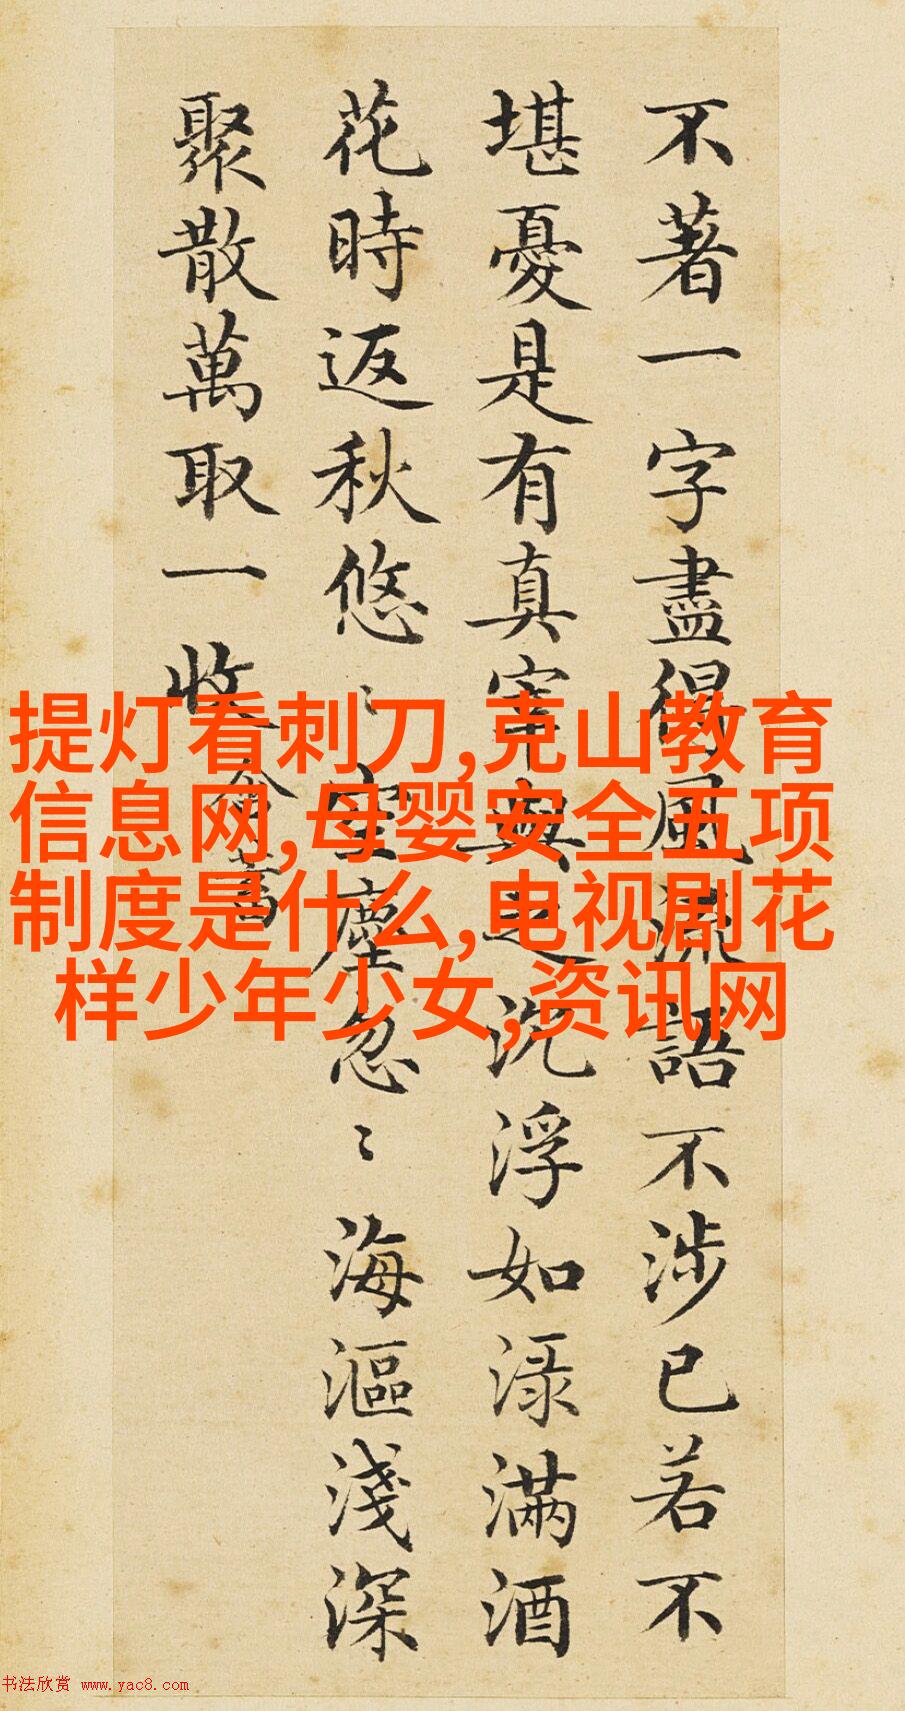 不著一字盡得風流語不涉已若不
堪憂是有真宰與之沉浮如淥滿酒
花時返秋悠〻空塵忽〻海漚淺深
聚散萬取一收
提灯看刺刀,克山教育
信息网,母婴安全五项
制度是什么,电视剧花
样少年少女,资讯网
书法欣赏 www.yac8.com